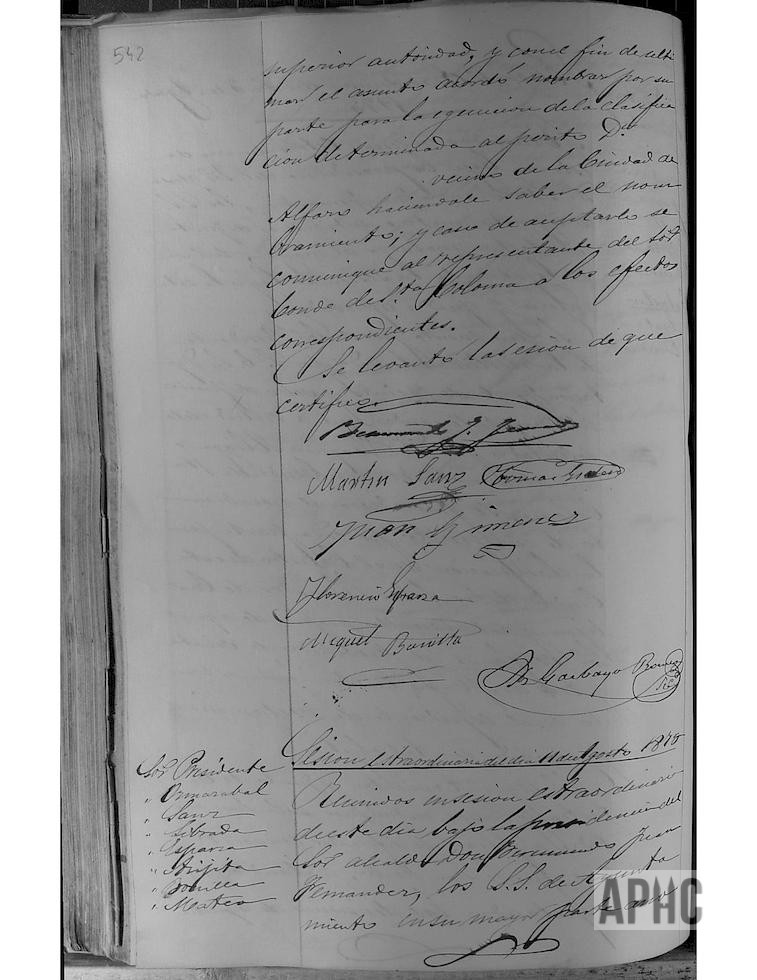 542
superior autoridad, y con el fin de ulti
mar el asunto acordó nombrar por su
parte para la egecucion de la clasifica
cion determinada al perito Dn
vecino de la Ciudad de
Alfaro haciendole saber el nom
bramiento; y caso de aceptarlo se
comunique al representante del Sor
Conde de Sta Coloma a los efectos
correspondientes.
Se levantó la sesion de que
certifico
Martin Sanz
Juan Gimenez
Florencio Esparza
Miguel Bonilla
Garbayo
Sesion extraordinaria del dia 11 de Agosto 1878
Sor Presidente
" Ormazabal
" Sanz
" Librada
" Esparza
" Bonilla
" Mateo
Reunidos en sesion extraordinaria
de este dia bajo la presidencia del
Sor alcalde Don Juan
Fernandez, los S.S. de Ayunta
miento en su mayor parte
APHC